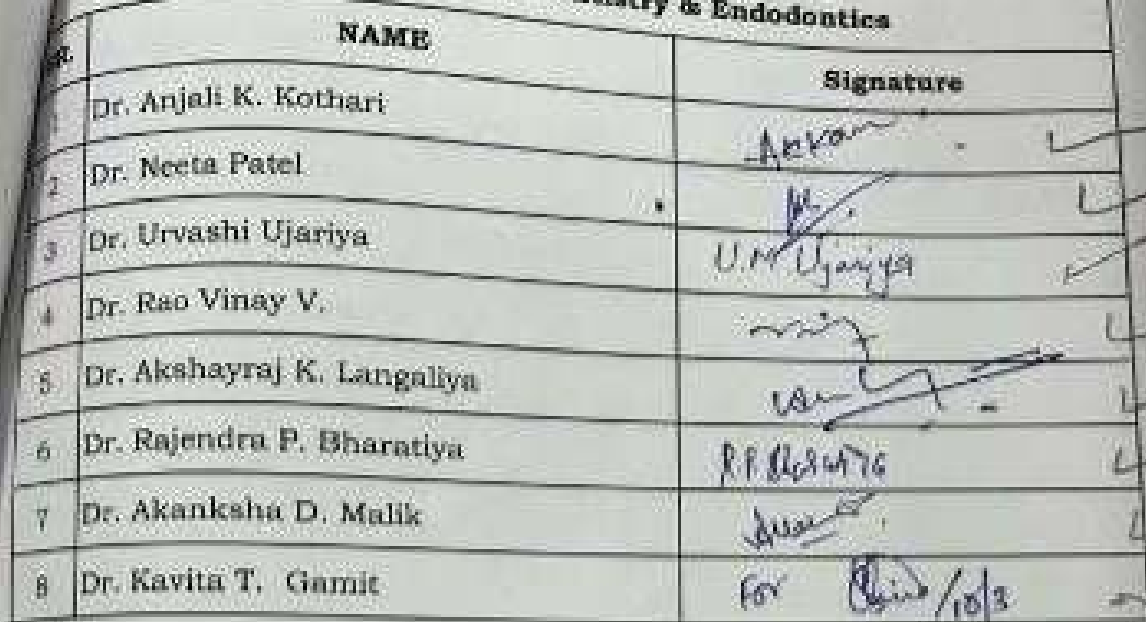 & Endodontics
NAME Signature
Dr. Anjali K. Kothari
2 Dr. Neeta Patel
3 Dr. Urvashi Ujariya U.M Ujariya
4 Dr. Rao Vinay V.
5 Dr. Akshayraj K. Langaliya
6 Dr. Rajendra P. Bharatiya
7 Dr. Akanksha D. Malik
8 Dr. Kavita T. Gamit For /10/3